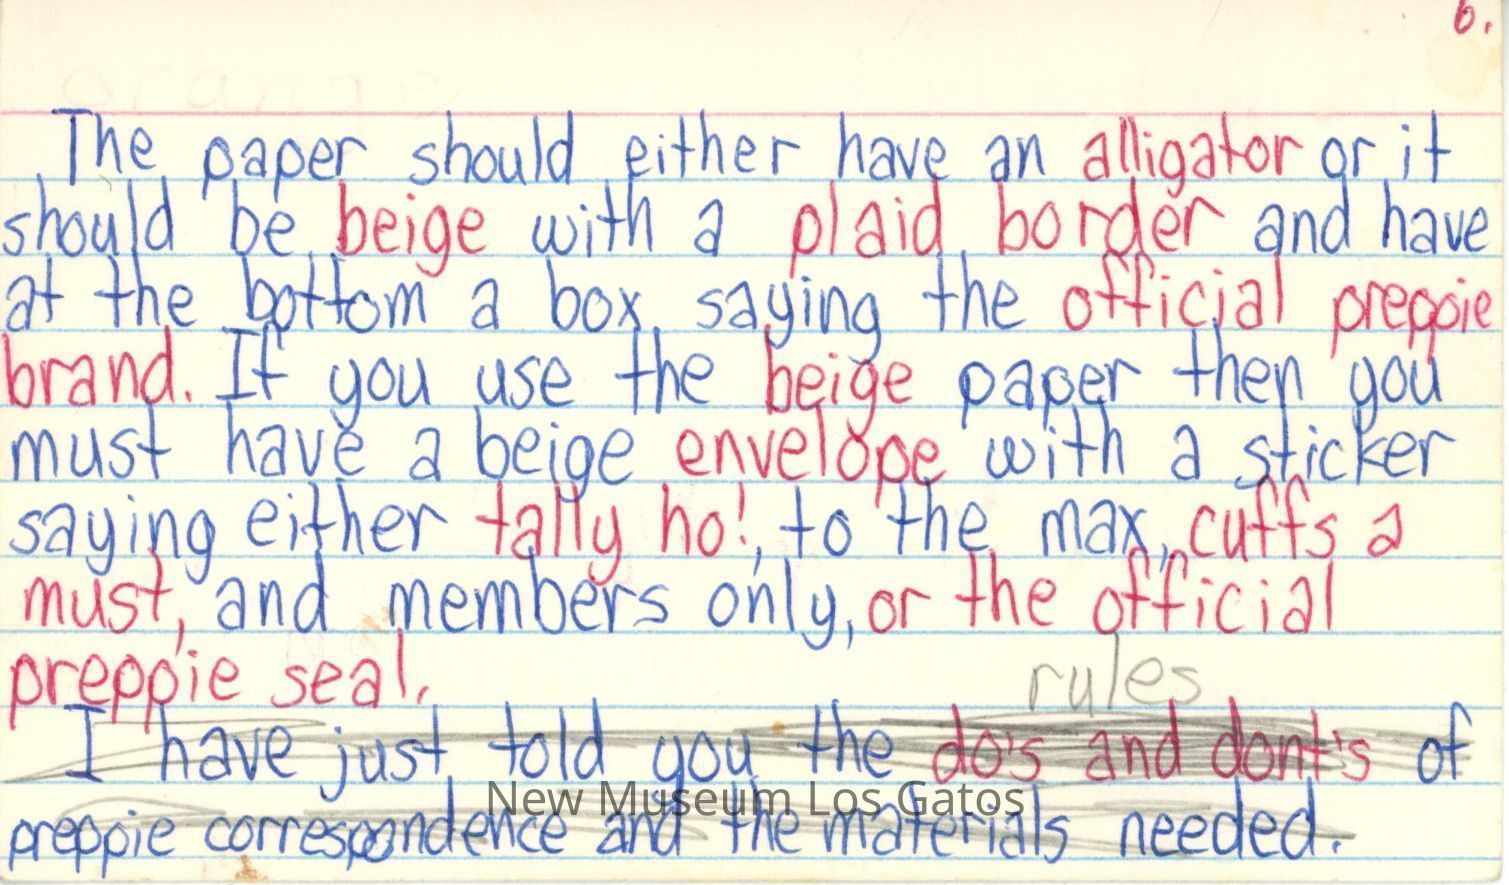 6.
The paper should either have an alligator or it
should be beige with a plaid border and have
at the bottom a box saying the official preppie
brand. If you use the beige paper then you
must have a beige envelope with a sticker
saying either tally ho!, to the max, cuffs a
must, and members only, or the official
preppie seal.
rules
I have just told you the do's and dont's of
preppie correspondence and the materials needed.
New Museum Los Gatos